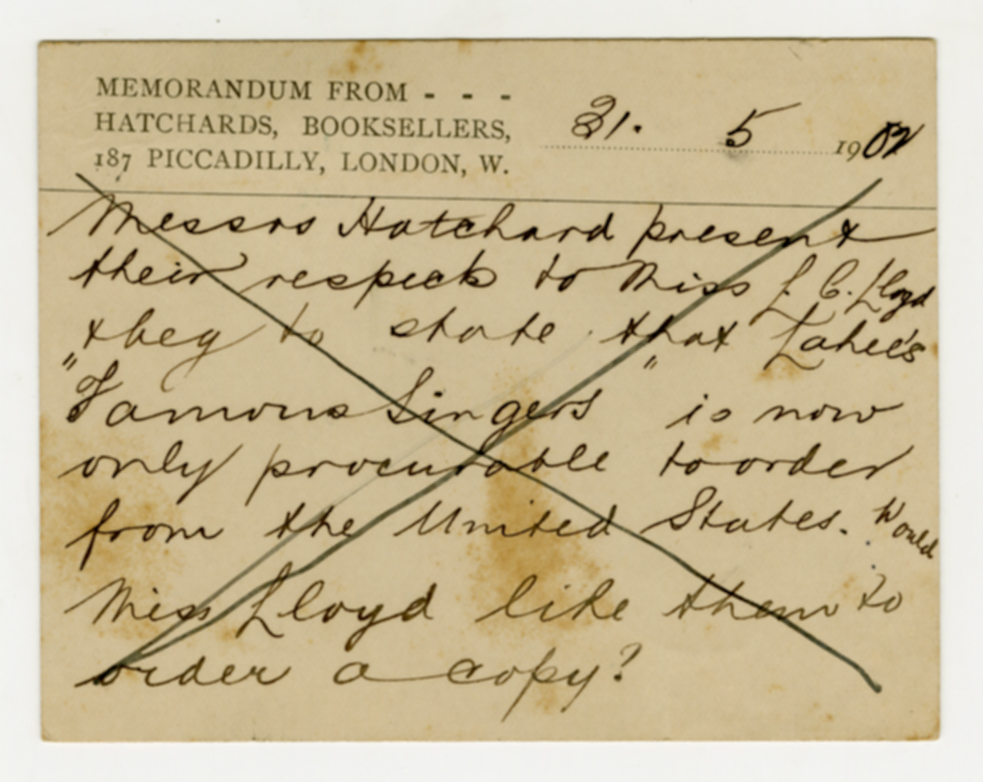 MEMORANDUM FROM - - -
HATCHARDS, BOOKSELLERS,
187 PICCADILLY, LONDON, W.
31. 5 1902
Messrs Hatchard present
their respects to Miss L. C. Lloyd
& beg to state that Lahee's
"Famous Singers" is now
only procurable to order
from the United States. Would
Miss Lloyd like them to
order a copy?